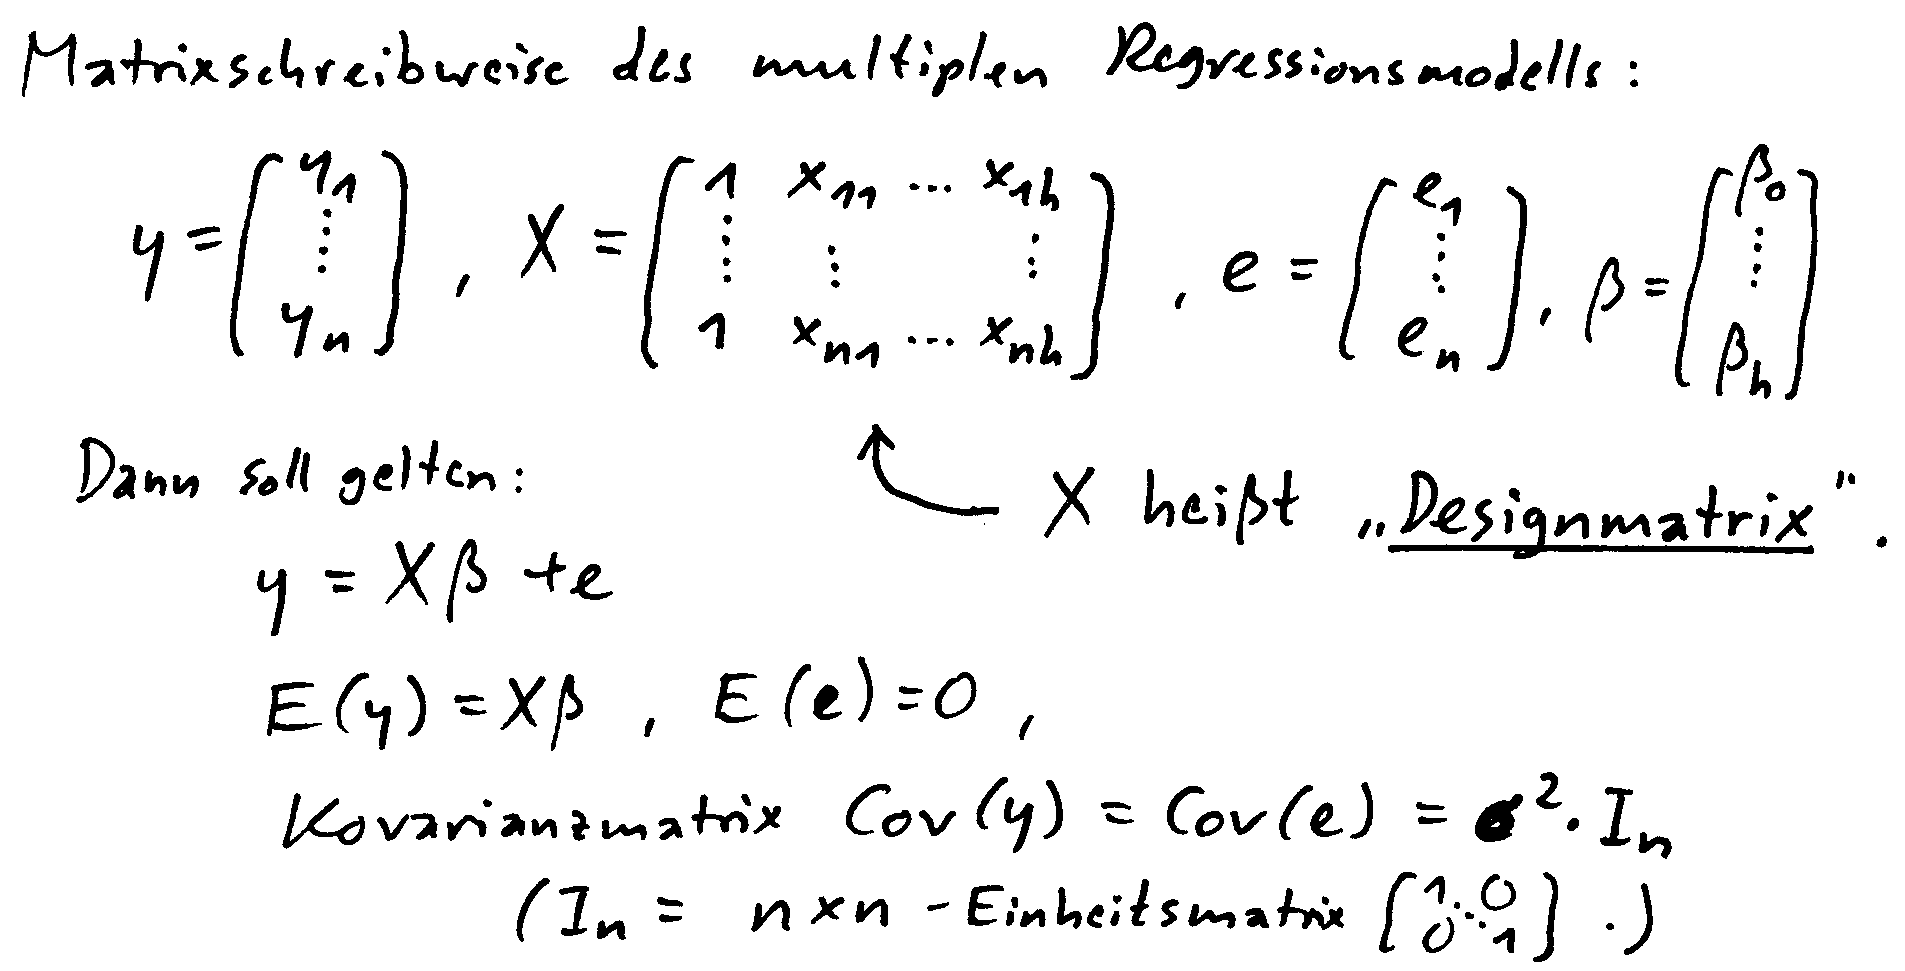 Matrixschreibweise des multiplen Regressionsmodells:
y = (y₁ ⋮ yₙ), X = (1 x₁₁ ... x₁ₕ ⋮ ⋮ ⋮ 1 xₙ₁ ... xₙₕ), e = (e₁ ⋮ eₙ), β = (β₀ ⋮ βₕ)
Dann soll gelten:
X heißt „Designmatrix“.
y = Xβ + e
E(y) = Xβ, E(e) = 0,
Kovarianzmatrix Cov(y) = Cov(e) = σ² · Iₙ
(Iₙ = n×n - Einheitsmatrix (1 0 ⋱ 0 1).)